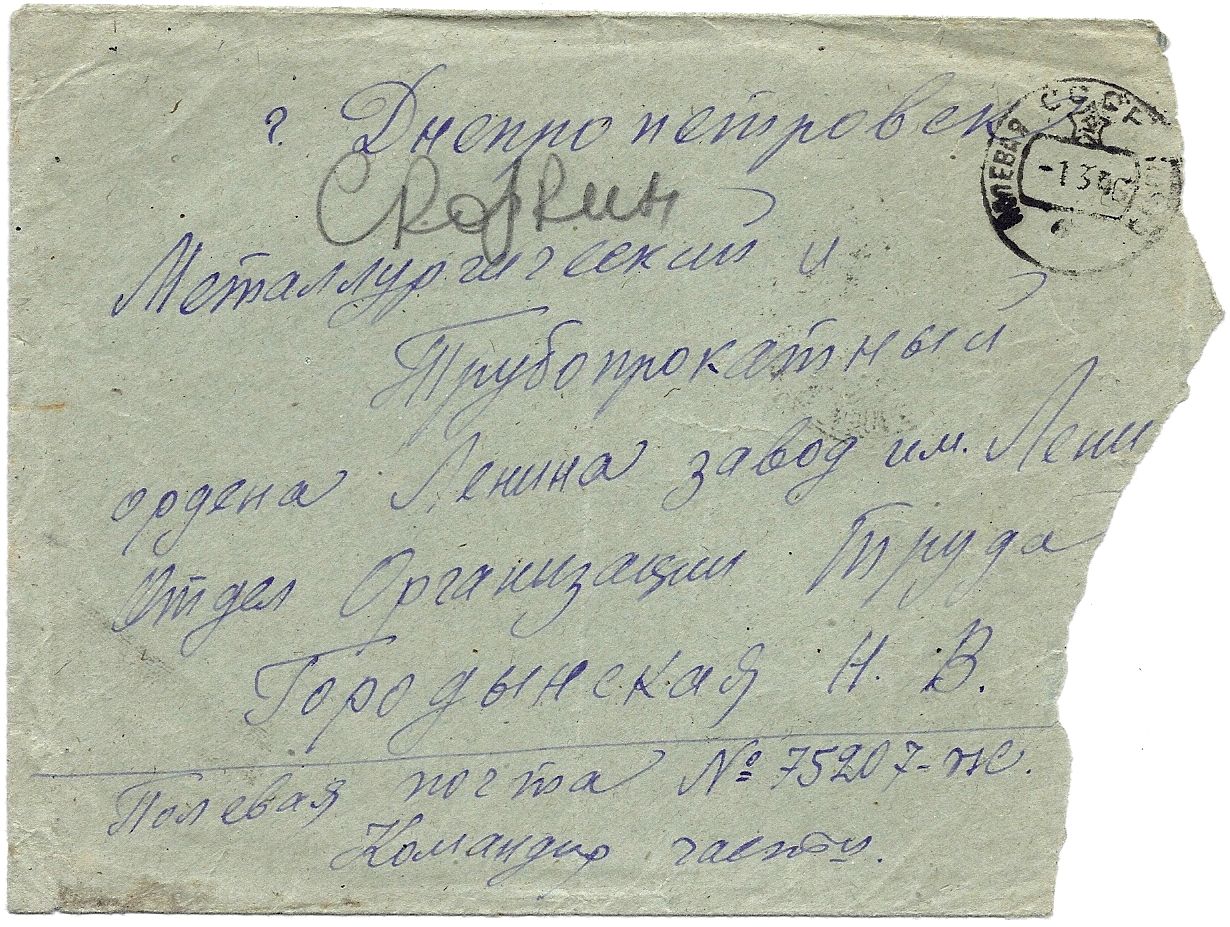 г. Днепропетровск
Металлургический и
Трубопрокатный
ордена Ленина завод им. Лени
Отдел Организации Труда
Городынская Н. В.
Полевая почта № 75207-Ж.
Командир части.
СССР
-1 3 46